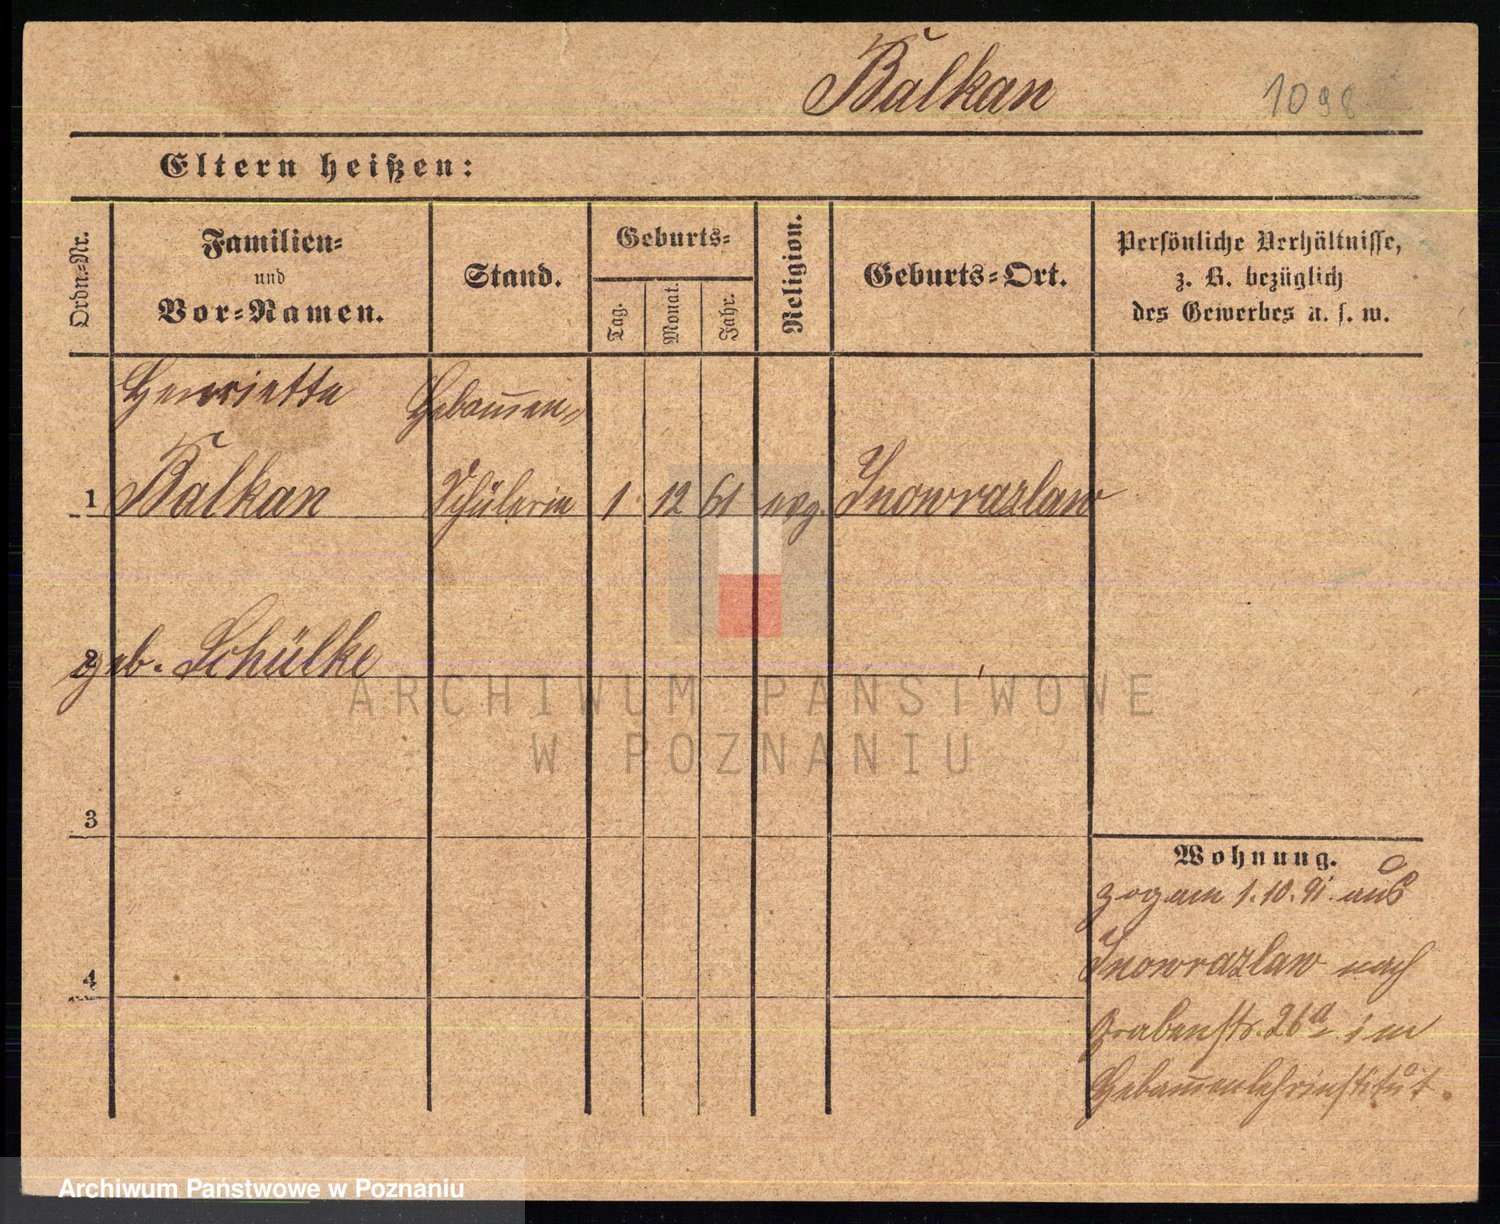 Balkan
1098
Eltern heißen:
Ordn.-Nr.
Familien-
und
Vor-Namen.
Stand.
Geburts-
Tag.
Monat.
Jahr.
Religion.
Geburts-Ort.
Persönliche Verhältnisse,
z. B. bezüglich
des Gewerbes u. s. w.
Henriette Hebam̅en-
1 Balkan Schülerin 1 12 61 evg. Inowrazlaw
2 geb. Schülke
3
4
Wohnung.
zog am 1.10.91. aus
Inowrazlaw nach
Grabenstr. 26a im
Hebam̅enlehrinstitut.
ARCHIWUM PAŃSTWOWE
W POZNANIU
Archiwum Państwowe w Poznaniu